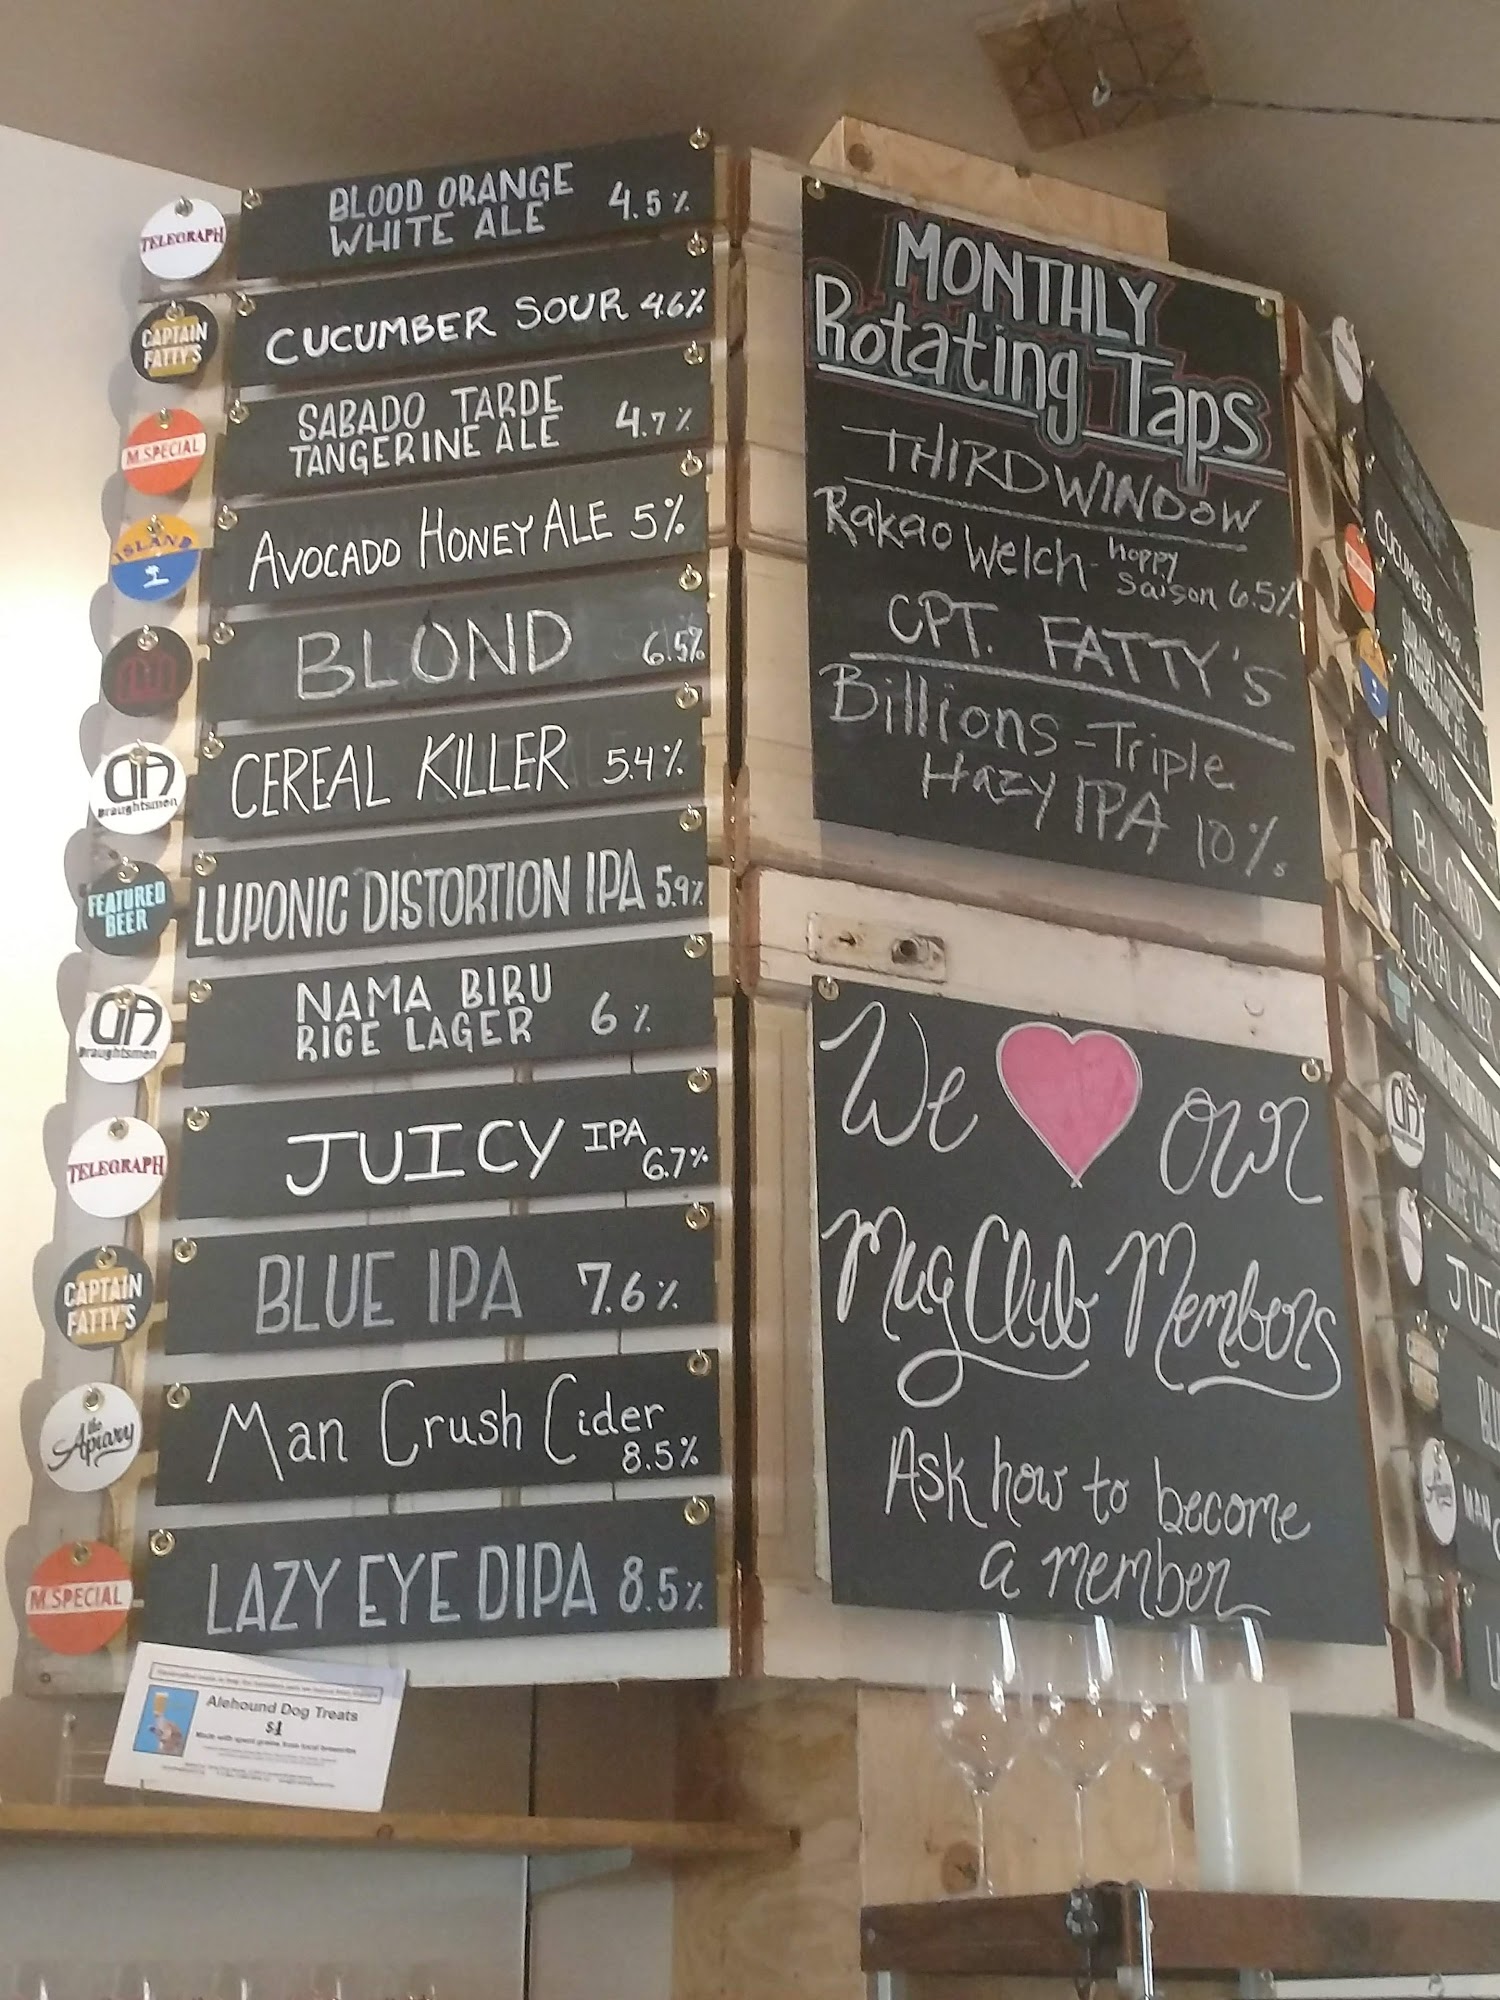 TELEGRAPH
BLOOD ORANGE
WHITE ALE 4.5%
CAPTAIN
FATTY'S
CUCUMBER SOUR 4.6%
M.SPECIAL
SABADO TARDE
TANGERINE ALE 4.7%
ISLAND
AVOCADO HONEY ALE 5%
BLOND 6.5%
DA
Draughtsmen
CEREAL KILLER 5.4%
FEATURED
BEER
LUPONIC DISTORTION IPA 5.9%
DA
Draughtsmen
NAMA BIRU
RICE LAGER 6%
TELEGRAPH
JUICY IPA
6.7%
CAPTAIN
FATTY'S
BLUE IPA 7.6%
the
Apiary
Man Crush Cider
8.5%
M.SPECIAL
LAZY EYE DIPA 8.5%
Alehound Dog Treats
$1
Made with spent grains from local breweries
MONTHLY
Rotating Taps
THIRD WINDOW
Rakao Welch - hoppy
saison 6.5%
CPT. FATTY'S
Billions - Triple
Hazy IPA 10%
We our
Mug Club Members
Ask how to become
a member
CUCUMBER SOUR
BLOND
CEREAL KILLER
DA
JUIC